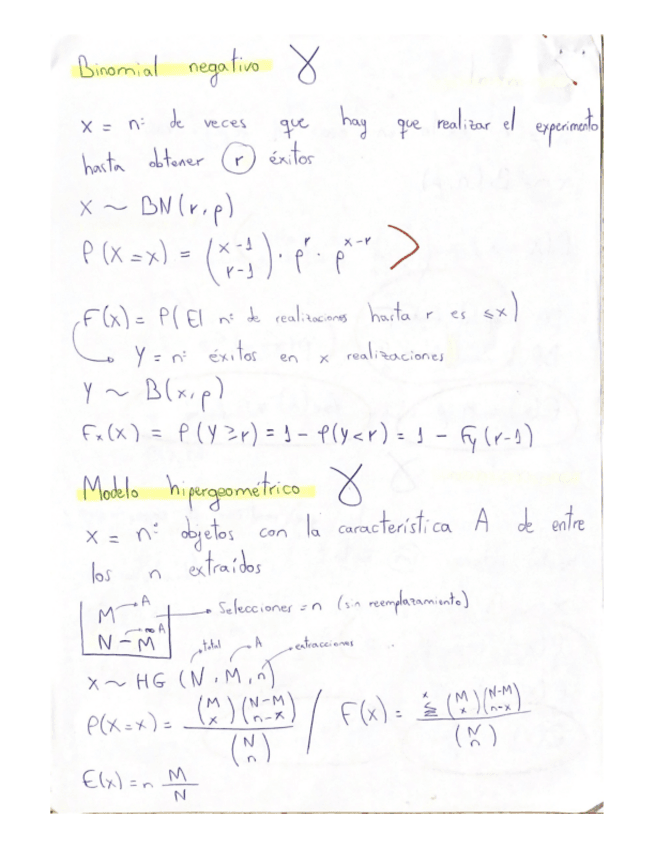 Binomial negativo γ
X = nº de veces que hay que realizar el experimento
hasta obtener r éxitos
X ~ BN(r,p)
P(X=x) = (x-1 r-1) · p^r · p^x-r
F(x) = P(El nº de realizaciones hasta r es ≤x)
Y = nº éxitos en x realizaciones
Y ~ B(x,p)
Fx(x) = P(Y≥r) = 1 - P(Y<r) = 1 - Fy(r-1)
Modelo hipergeométrico γ
X = nº objetos con la característica A de entre
los n extraídos
M → A → Selecciones = n (sin reemplazamiento)
N-M → no A
total A extracciones
X ~ HG (N, M, n)
P(X=x) = (M x)(N-M n-x) / (N n) / F(x) = Σ^x (M x)(N-M n-x) / (N n)
E(x) = n M/N